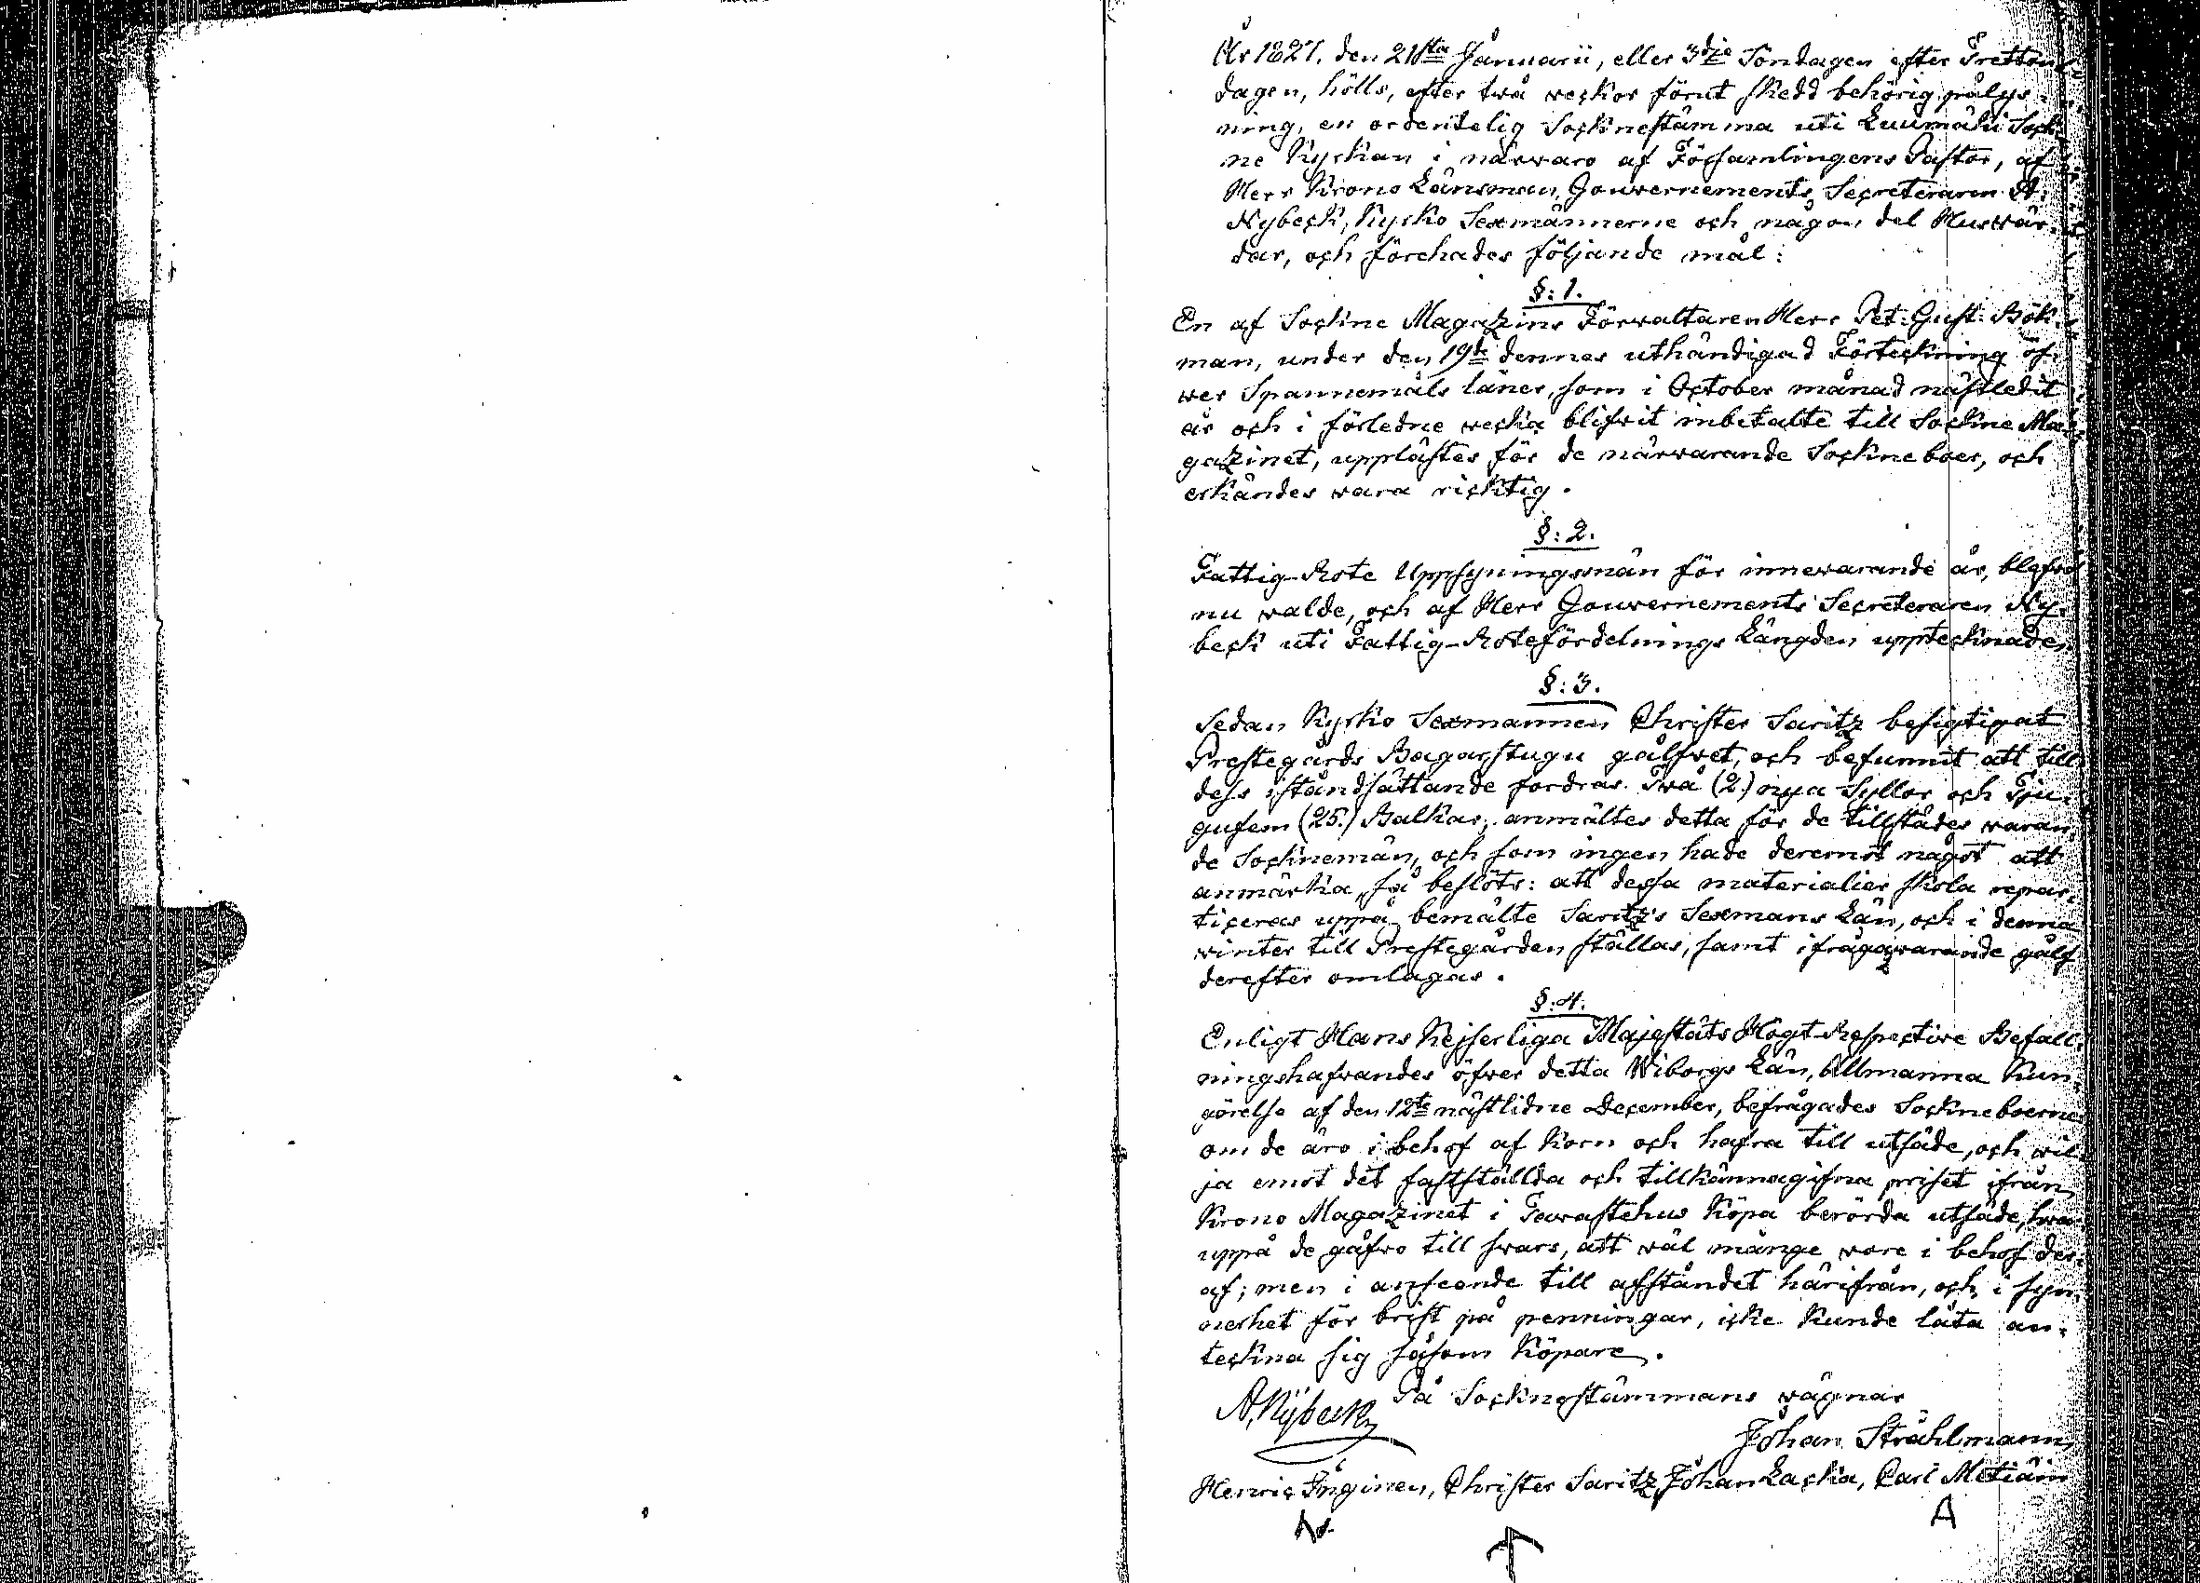 År 1827. den 21sta Januarii, eller 3dje Söndagen efter Tretton-
dagen, hölls, efter två veckor förut skedd behörig pålys-
ning, en ordentelig Sockneståmma uti Luumäki Sock-
ne Kyrkan i närvaro af Församlingens Pastor, af
Herr Krono Länsman, Gouvernements Secreteraren A.
Nybeck, Kyrko Sexmännerne och någon del Huswär-
dar, och förehades följande mål:
§: 1.
En af Sockne Magazins Förvaltaren Herr Pet: Gust: Bök-
man, under den 19de dennes uthändigad Förteckning öf-
wer Spannemåls låner, som i October månad nästledit
år och i förledne vecka blifvit inbetalte till Sockne Ma-
gazinet, upplästes för de närvarande Sockneboer, och
erkändes vara ricktig.
§: 2.
Fattig-Rote Uppsyningsmän för innevarande år, blefvo
nu valde, och af Herr Gouvernements Secreteraren Ny-
beck uti Fattig-Rotefördelnings Längden upptecknade.
§: 3.
Sedan Kyrko Sexmannen Christer Saritz besigtigat
Prestegårds Bagarstugu gålfvet, och befunnit att till
dess iståndsättande fordras Två (2.) nya Syllor och Tju-
gufem (25.) Balkar, anmältes detta för de tillstädes varan-
de Socknemän, och som ingen hade deremot något att
anmärka, så beslöts: att dessa materialier skola repar-
ticeras uppå bemälte Saritz's Sexmans Län, och i denna
vinter till Prestegården ställas, samt ifrågavarande gålf
derefter omlagas.
§: 4.
Enligt Hans Kejserliga Majestäts Högt Respective Befall-
ningshafvandes öfver detta Wiborgs Län, Allmänna Kun-
görelse af den 12te nästlidne December, befrågades Sockneboerne
om de äro i behof af Korn och hafra till utsäde, och vil-
ja emot det fastställda och tillkännagifna priset ifrån
Krono Magazinet i Tavastehus Köpa berörda utsäde, hvar-
uppå de gåfvo till svars, att väl månge vore i behof der-
af; men i anseende till afståndet härifrån, och i syn-
nerhet för brist på penningar, icke kunde låta an-
teckna sig såsom Köpare.
På Socknestämmans vägnar
A. Nybeck
Johan Stråhlmann,
Henric Inginen, Christer Saritz, Johan Lacka, Carl Metiäin